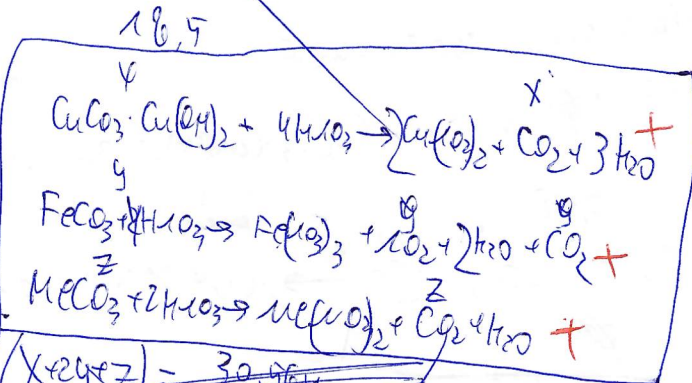 18,5
x x
CuCO3·Cu(OH)2 + 4HNO3 → 2Cu(NO3)2 + CO2 + 3H2O +
y y y
FeCO3 + 4HNO3 → Fe(NO3)3 + NO2 + 2H2O + CO2 +
z z
MeCO3 + 2HNO3 → Me(NO3)2 + CO2 + H2O +
(x+2y+z) =